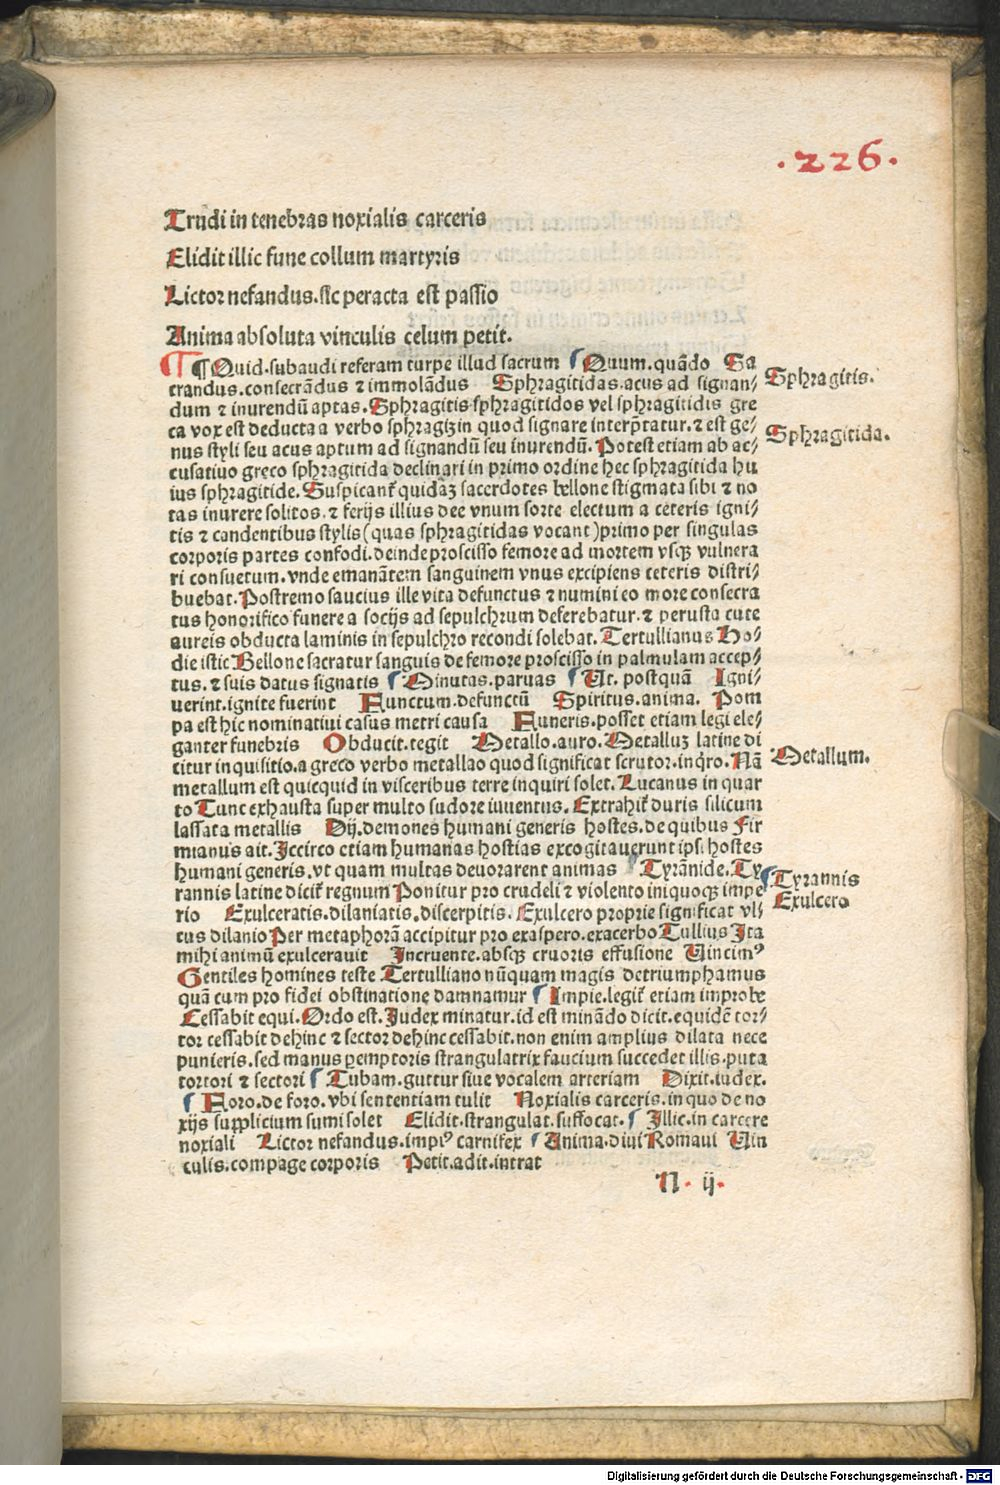 .226.
Trudi in tenebras noxialis carceris
Elidit illic fune collum martyris
Lictor nefandus.sic peracta est passio
Anima absoluta vinculis celum petit.
¶ Quid.subaudi referam turpe illud sacrum Quum.quãdo Sa
crandus.consecrãdus ⁊ immolãdus Sphragitidas.acus ad signan/
dum ⁊ inurendũ aptas.Sphragitis sphragitidos vel sphragitidis gre
ca vox est deducta a verbo sphragizin quod signare interp̃tatur.⁊ est ge/
nus styli seu acus aptum ad signandũ seu inurendũ.Potest etiam ab ac/
cusatiuo greco sphragitida declinari in primo ordine hec sphragitida hu
ius sphragitide.Suspicant᷑ quidãꝫ sacerdotes bellone stigmata sibi ⁊ no
tas inurere solitos.⁊ ferijs illius dee vnum sorte electum a ceteris igni/
tis ⁊ candentibus stylis(quas sphragitidas vocant)primo per singulas
corporis partes confodi.deinde proscisso femore ad mortem vsqꝫ vulnera
ri consuetum.vnde emanãtem sanguinem vnus excipiens ceteris distri/
buebat.Postremo saucius ille vita defunctus ⁊ numini eo more consecra
tus honorifico funere a socijs ad sepulchrum deferebatur.⁊ perusta cute
aureis obducta laminis in sepulchro recondi solebat.Tertullianus Ho/
die istic Bellone sacratur sanguis de femore proscisso in palmulam accep/
tus.⁊ suis datus signatis Minutas.paruas Ut.postquã Igni/
uerint.ignite fuerint Functum.defunctũ Spiritus.anima. Pom
pa est hic nominatiui casus metri causa Funeris.posset etiam legi ele/
ganter funebris Obducit.tegit Metallo.auro.Metalluꝫ latine di
citur inquisitio.a greco verbo metallao quod significat scrutor.inq̃ro.Nã
metallum est quicquid in visceribus terre inquiri solet.Lucanus in quar
to Tunc exhausta super multo sudore iuuentus.Extrahit᷑ duris silicum
lassata metallis Dij.demones humani generis hostes.de quibus Fir
mianus ait.Iccirco etiam humanas hostias excogitauerunt ipsi hostes
humani generis.vt quam multas deuorarent animas Tyrãnide.Ty
rannis latine dicit᷑ regnum Ponitur pro crudeli ⁊ violento iniquoqꝫ impe
rio Exulceratis.dilaniatis.discerpitis. Exulcero proprie significat vl/
cus dilanio Per metaphorã accipitur pro exaspero.exacerbo Tullius Ita
mihi animũ exulcerauit Incruente.absqꝫ cruoris effusione Uincimꝰ
Gentiles homines teste Tertulliano nũquam magis detriumphamus
quã cum pro fidei obstinatione damnamur Impie.legit᷑ etiam improbe
Cessabit equi.Ordo est.Iudex minatur.id est minãdo dicit.equidẽ tor/
tor cessabit dehinc ⁊ sector dehinc cessabit.non enim amplius dilata nece
punieris.sed manus ꝑemptoris strangulatrix faucium succedet illis.puta
tortori ⁊ sectori Tubam.guttur siue vocalem arteriam Dixit.iudex.
Foro.de foro.vbi sententiam tulit Noxialis carceris.in quo de no
xijs supplicium sumi solet Elidit.strangulat.suffocat. Illic.in carcere
noxiali Lictor nefandus.impiꝰ carnifex Anima.diui Romani Uin
culis.compage corporis Petit.adit.intrat
N.ij.
Sphragitis.
Sphragitida.
Metallum.
Tyrannis
Exulcero
Digitalisierung gefördert durch die Deutsche Forschungsgemeinschaft - DFG